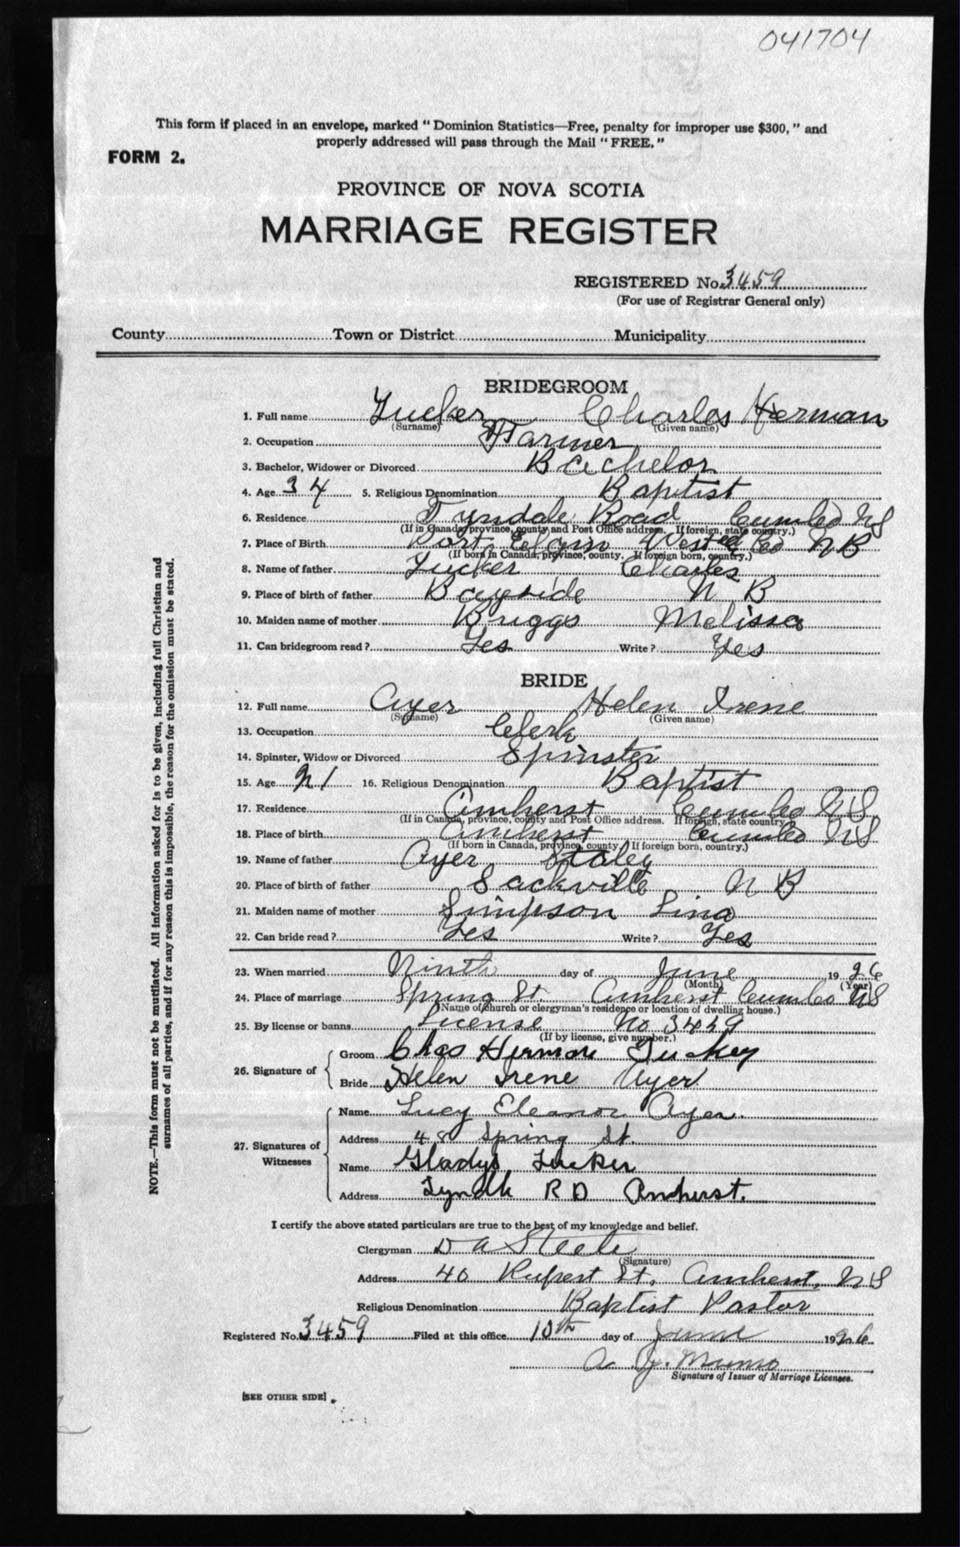 041704
This form if placed in an envelope, marked "Dominion Statistics—Free, penalty for improper use $300," and
properly addressed will pass through the Mail "FREE."
FORM 2.
PROVINCE OF NOVA SCOTIA
MARRIAGE REGISTER
REGISTERED No. 3459
(For use of Registrar General only)
County Town or District Municipality
BRIDEGROOM
1. Full name Tucker Charles Herman
(Surname) (Given name)
2. Occupation Farmer
3. Bachelor, Widower or Divorced Bachelor
4. Age 34 5. Religious Denomination Baptist
6. Residence Tyndale Road Cumb Co NS
(If in Canada, province, county and Post Office address. If foreign, state country.)
7. Place of Birth Port Elgin West Co NB
(If born in Canada, province, county. If foreign born, country.)
8. Name of father Tucker Charles
9. Place of birth of father Bayside N B
10. Maiden name of mother Briggs Melissa
11. Can bridegroom read? Yes Write? Yes
BRIDE
12. Full name Ayer Helen Irene
(Surname) (Given name)
13. Occupation Clerk
14. Spinster, Widow or Divorced Spinster
15. Age 21 16. Religious Denomination Baptist
17. Residence Amherst Cumb Co NS
(If in Canada, province, county and Post Office address. If foreign, state country
18. Place of birth Amherst Cumb Co NS
(If born in Canada, province, county. If foreign born, country.)
19. Name of father Ayer Staley
20. Place of birth of father Sackville N B
21. Maiden name of mother Simpson Lina
22. Can bride read? Yes Write? Yes
23. When married Ninth day of June 1926
(Month) (Year)
24. Place of marriage Spring St. Amherst Cumb Co NS
(Name of church or clergyman's residence or location of dwelling house.)
25. By license or banns License No 3459
(If by license, give number.)
26. Signature of
Groom Chas Herman Tucker
Bride Helen Irene Ayer
27. Signatures of Witnesses
Name Lucy Eleanor Ayer.
Address 48 Spring St.
Name Gladys Tucker
Address R D Amherst.
I certify the above stated particulars are true to the best of my knowledge and belief.
Clergyman D A Steele
(Signature)
Address 40 Rupert St. Amherst, NS
Religious Denomination Baptist Pastor
Registered No. 3459 Filed at this office 10th day of June 1926
A. J. Munro
Signature of Issuer of Marriage Licenses.
[SEE OTHER SIDE]
NOTE.—This form must not be mutilated. All information asked for is to be given, including full Christian and
surnames of all parties, and if for any reason this is impossible, the reason for the omission must be stated.